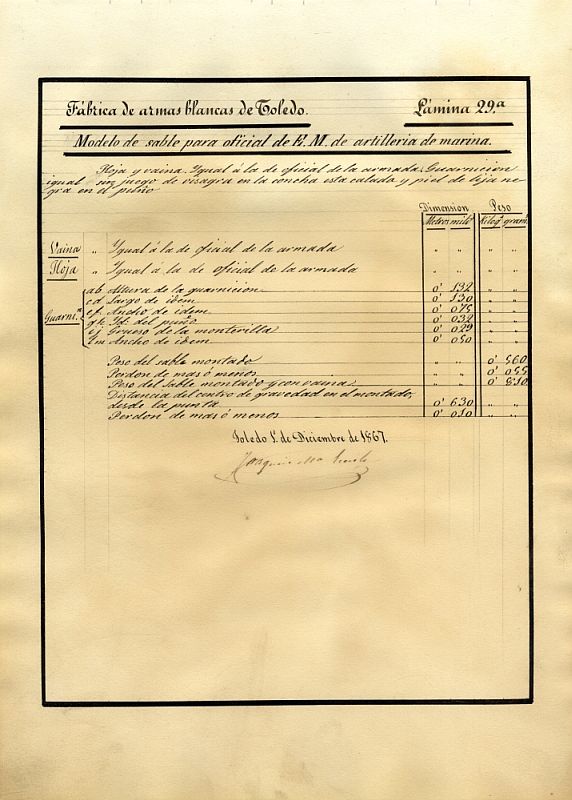 Fábrica de armas blancas de Toledo. Lámina 29.a
Modelo de sable para oficial de E. M. de artilleria de marina.
Hoja y vaina. Igual á la de oficial de la armada. Guarnicion
igual un juego de visagra en la concha esta calado y piel de lija ne
gra en el puño
Dimension Peso
Metros milis Kilogs grams
Vaina " Igual á la de oficial de la armada " " " "
Hoja " Igual á la de oficial de la armada " " " "
Guarn.n
ab Altura de la guarnicion 0' 132 " "
cd Largo de idem 0' 130 " "
ef Ancho de idem 0' 075 " "
gh Id. del puño 0' 032 " "
ij Grueso de la monterilla 0' 029 " "
lm Ancho de idem 0' 050 " "
Peso del sable montado " " 0' 560
Perdon de mas ó menos " " 0' 055
Peso del sable montado y con vaina " " 0' 810
Distancia del centro de gravedad en el montado,
desde la punta 0' 630 " "
Perdon de mas ó menos 0' 010 " "
Toledo 1.º de Diciembre de 1867.
Joaquin